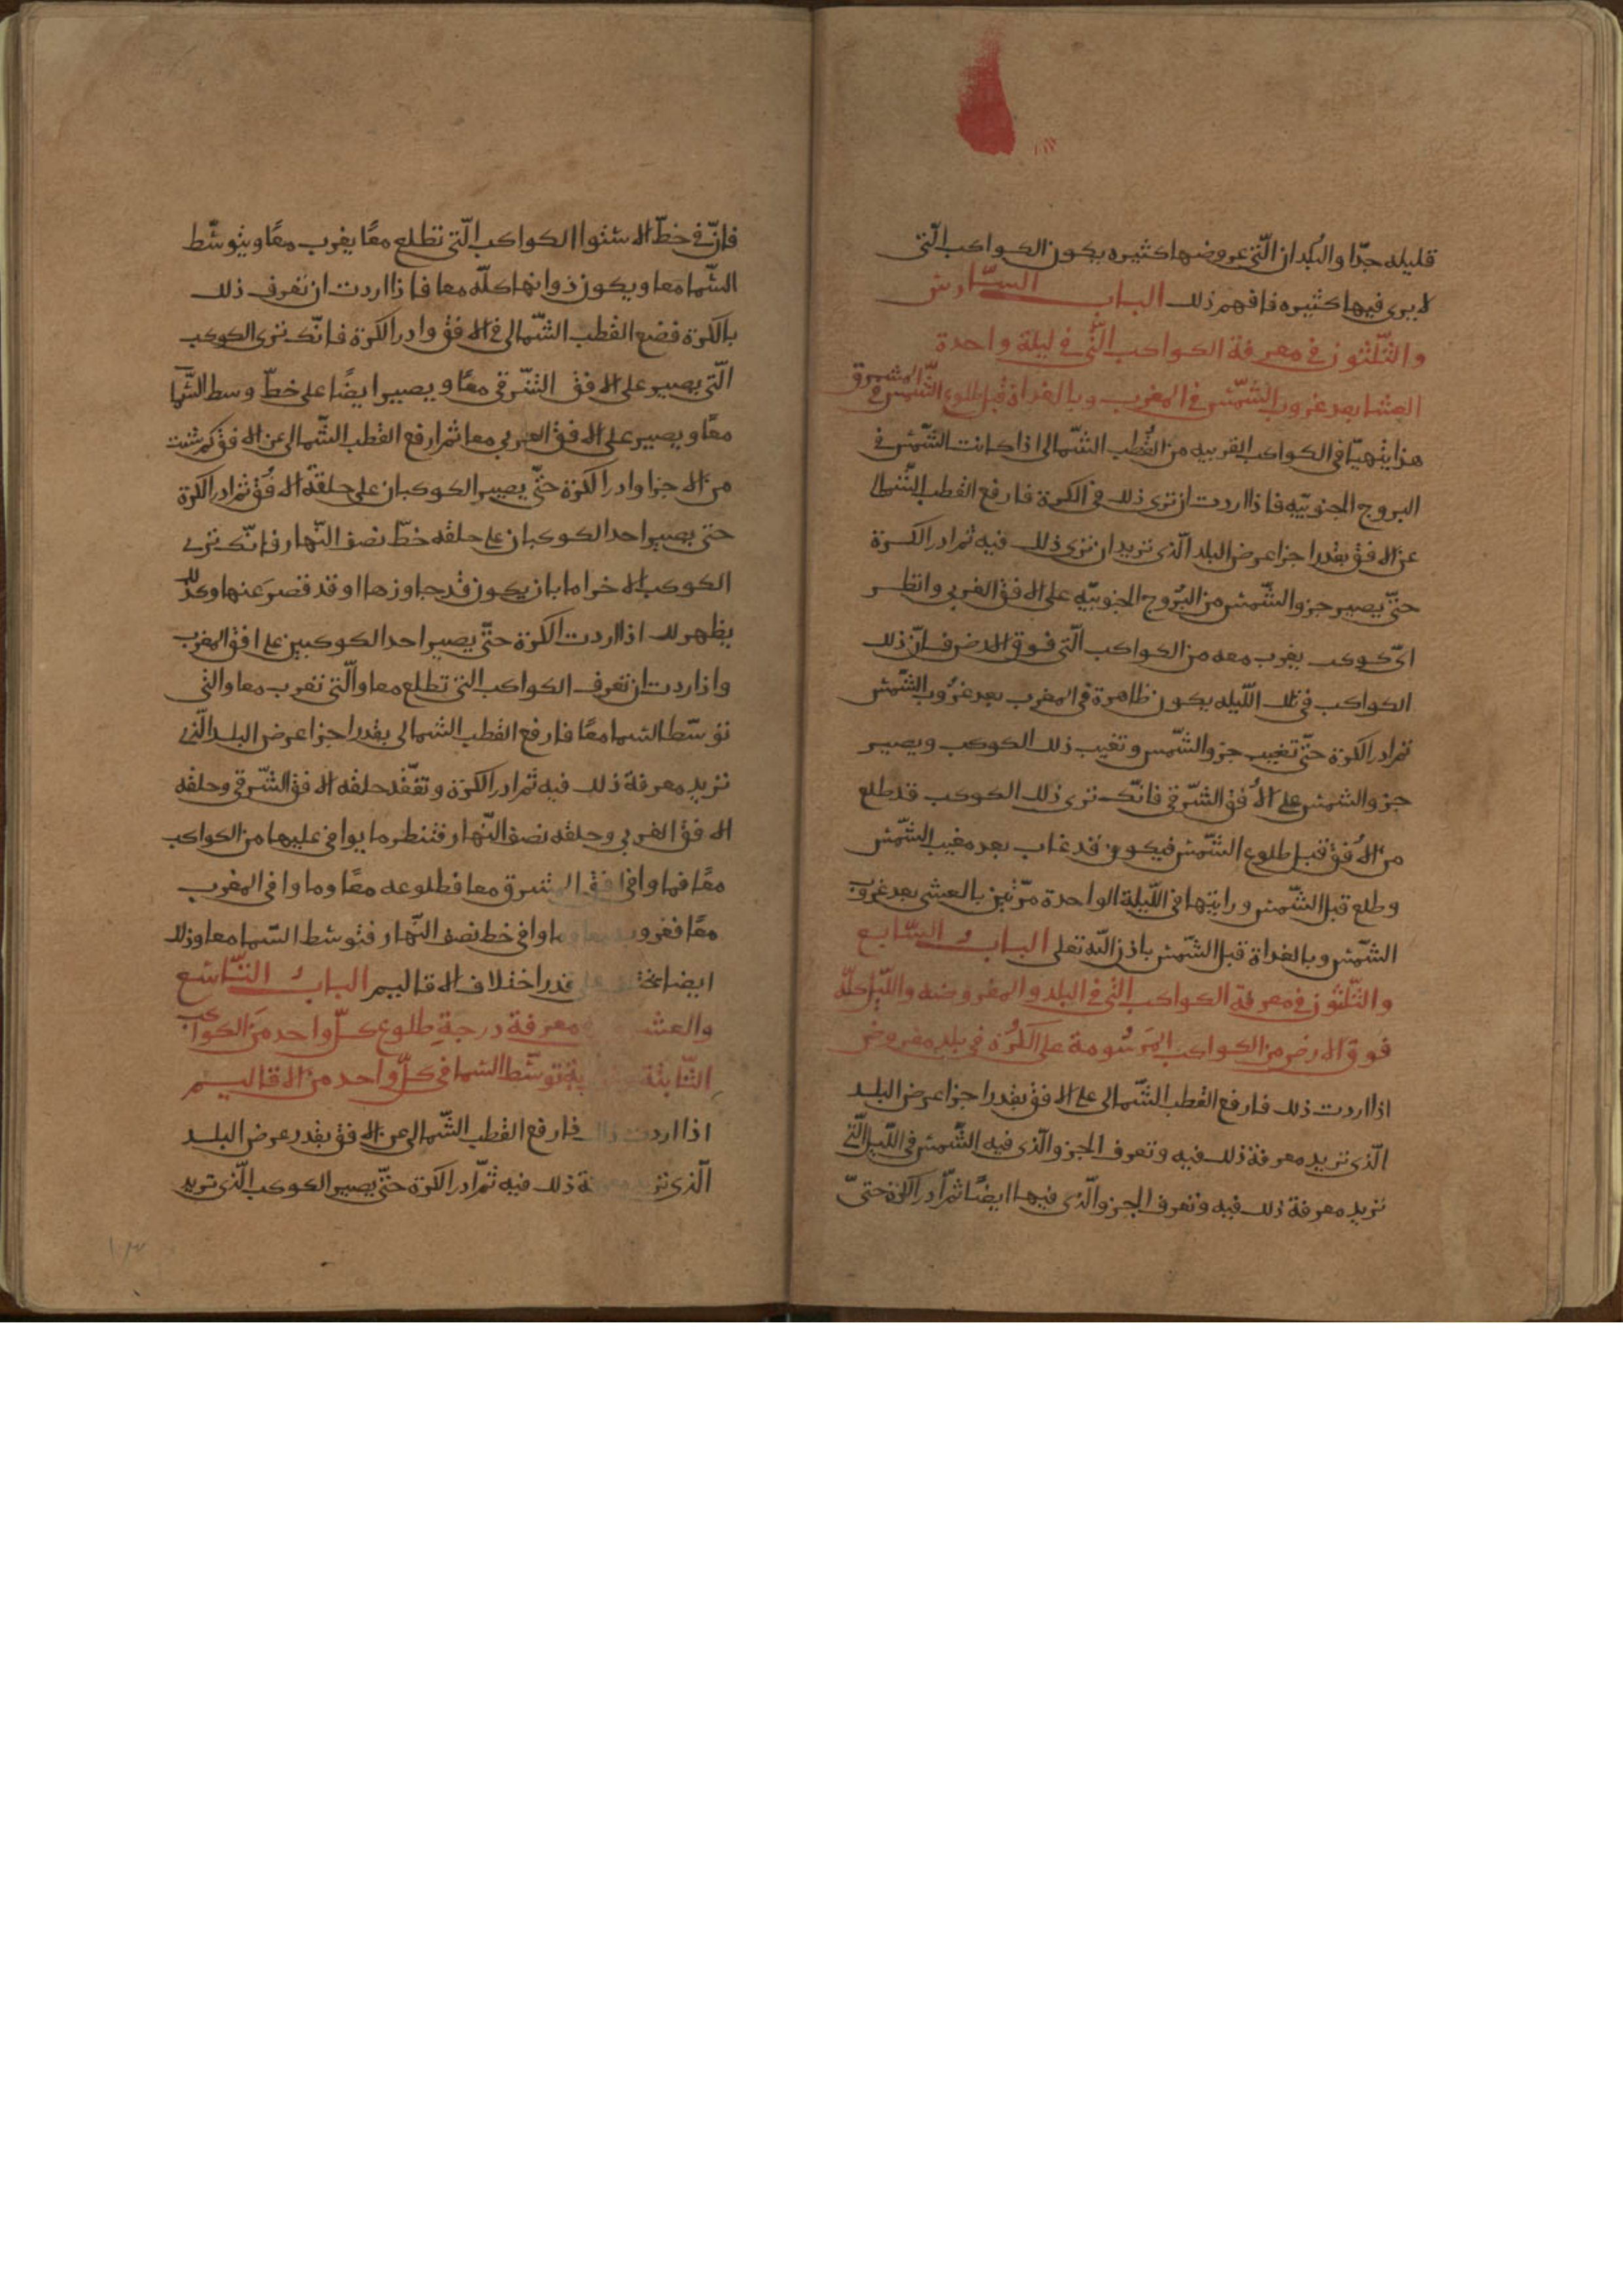 قليله جدّا والبلدان الّتي عروضها كثيره يكون الكواكب الّتي
لا يرى فيها كثيره فافهم ذلك الباب السّادس
والثّلثون في معرفة الكواكب الّتي في ليلة واحدة
العشا بعد غروب الشّمس في المغرب وبالغداة قبل طلوع الشّمس في المشرق
هذا يتهيّا في الكواكب القريبه من القُطب الشّمالى اذا كانت الشّمس في
البروج الجنوبيّه فاذا اردت ان ترى ذلك في الكرة فارفع القطب الشّمالى
عن الافق بقدر اجزا عرض البلد الّذى تريد ان ترى ذلك فيه ثم ادر الكرة
حتّى يصير جزو الشّمس من البُروج الجنوبيّه على الافق الغربي وانظر
اىّ كوكب يغرب معه من الكواكب الّتي فوق الارض فانّ ذلك
الكواكب في تلك اللّيله يكون ظاهرة في المغرب بعد غروب الشّمس
ثم ادر الكرة حتّى تغيب جزو الشّمس وتغيب ذلك الكوكب ويصير
جزو الشمس على الاُفق الشّرقي فانّك ترى ذلك الكوكب قد طلع
من الاُفق قبل طلوع الشّمس فيكون قد غاب بعد مغيب الشّمس
وطلع قبل الشّمس ورايتها في اللّيلة الواحدة مرّتين بالعشى بعد غروب
الشّمس وبالغداة قبل الشّمس باذن اللّه تعلى الباب السّابع
والثّلثون في معرفة الكواكب الّتي في البلد والمفروضه واللّيل كلّه
فوق الارض من الكواكب المَرسُومة على الكرُة في بلد مفروض
اذا اردت ذلك فارفع القطب الشّمالى على الافق بقدر اجزا عرض البلد
الّذى تريد معرفة ذلك فيه وتعرف الجزو الّذى فيه الشّمس في اللّيل الّتي
تريد معرفة ذلك فيه وتعرف الجزو الّذى فيها ايضًا ثمّ ادر الكرة حتىّ
فانّ في خطّ الاستوا الكواكب الّتي تطلع معًا يغرب معًا ويتوسّط
السّما معا ويكون ذوانها كلّه معا فاذا اردت ان تعرف ذلك
بالكرة فضع القطب الشّمالى في الافق وادر الكرة فانّك ترى الكوكب
الّتي يصير على الافق الشّرقي معًا ويصير ايضًا على خطّ وسط السّما
معًا ويصير على الافق الغربي معا ثم ارفع القطب الشّمالى عن الافق كم شئت
من الاجزا وادر الكرة حتّى يصير الكوكبان على حلقة الاُفق ثم ادر الكرة
حتى يصير احد الكوكبان على حلقه خطّ نصف النّهار فانّك ترى
الكوكب الاخر اما بان يكون قد جاوزها او قد قصرَ عنها وكذلك
يظهر لك اذا اردت الكرة حتّى يصير احد الكوكبين على افق المغرب
واذا ردت ان تعرف الكواكب الّتي تطلع معا والّتي تغرب معا والتي
توسّط السّما معًا فارفع القطب الشمالى بقدر اجزا عرض البلد الّذى
تريد معرفة ذلك فيه ثم ادر الكرة وتفقّد حلقه الافق الشّرقي وحلقه
الافق الغربي وحلقه نصف النّهار فتنظر ما يوافي عليها من الكواكب
معًا فما وافي افق المشرق معا فطلوعه معًا وما وافى المغرب
معًا فغروبه معا وما وافي خط نصف النّهار فتوسّط السّما معا وذلك
ايضا يختلف على قدر اختلاف الاقاليم الباب التّاسع
والعش معرفة درجةِ طلوع كلّ واحد منَ الكواكب
الثّابتة توسّط السّما في كلّ واحد من الاقاليم
اذا اردت ذلك فارفع القطب الشّمالى عن الافق بقدر عرض البلد
الّذى تريد معرفة ذلك فيه ثمّ ادر الكرة حتّى يصير الكوكب الّذى تريد